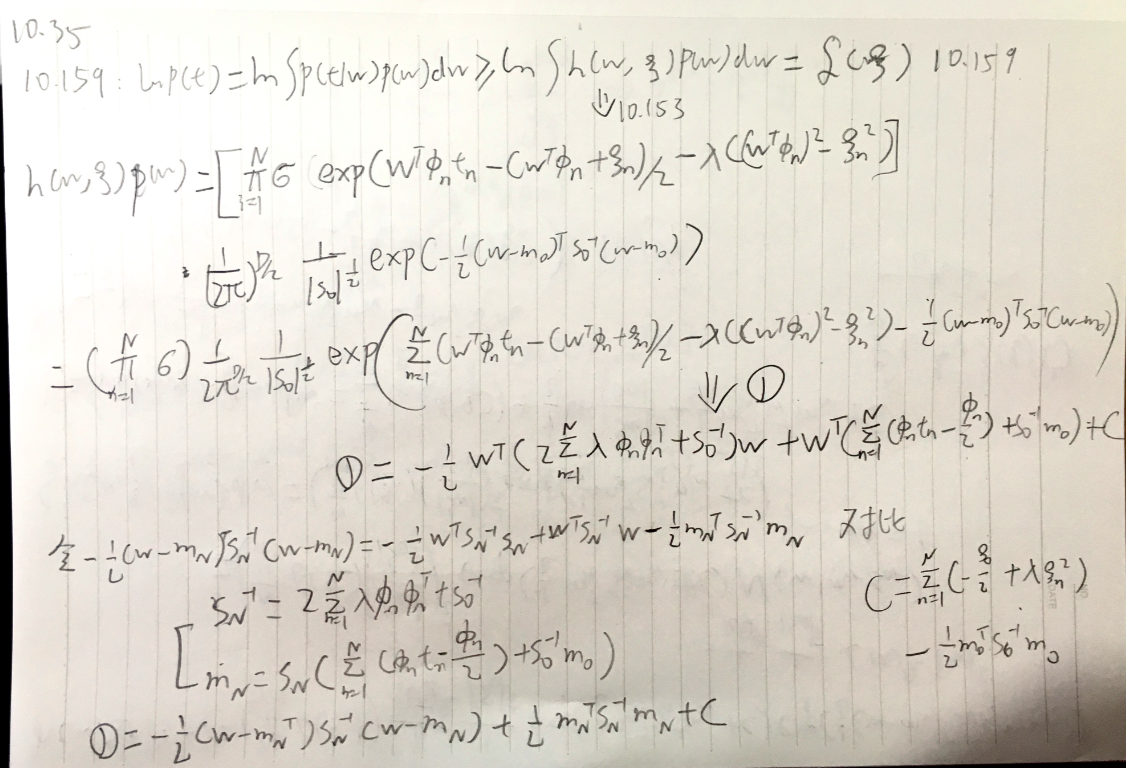 10.35
10.159: lnp(t)=ln∫p(t|w)p(w)dw⩾ln∫h(w,ξ)p(w)dw=L(ξ) 10.159
⇓10.153
h(w,ξ)p(w)=[∏_{i=1}^{N}σ(exp(w^Tϕ_nt_n-(w^Tϕ_n+ξ_n)/2-λ((w^Tϕ_n)^2-ξ_n^2)]
(1/2π)^{D/2} 1/|S_0|^{1/2} exp(-1/2(w-m_0)^TS_0^{-1}(w-m_0))
=(∏_{n=1}^{N}σ) 1/2π^{D/2} 1/|S_0|^{1/2} exp(∑_{n=1}^{N}(w^Tϕ_nt_n-(w^Tϕ_n+ξ_n)/2-λ((w^Tϕ_n)^2-ξ_n^2)-1/2(w-m_0)^TS_0^{-1}(w-m_0))
⇓①
①=-1/2 w^T(2∑_{n=1}^{N}λϕ_nϕ_n^T+S_0^{-1})w+w^T(∑_{n=1}^{N}(ϕ_nt_n-ϕ_n/2)+S_0^{-1}m_0)+C
令-1/2(w-m_N)^TS_N^{-1}(w-m_N)=-1/2w^TS_N^{-1}S_N+w^TS_N^{-1}w-1/2m_N^TS_N^{-1}m_N 对比
S_N^{-1}=2∑_{n=1}^{N}λϕ_nϕ_n^T+S_0^{-1}
C=∑_{n=1}^{N}(-ξ/2+λξ_n^2)
-1/2m_0^TS_0^{-1}m_0
m_N=S_N(∑_{n=1}^{N}(ϕ_nt_n-ϕ_n/2)+S_0^{-1}m_0)
①=-1/2(w-m_N^T)S_N^{-1}(w-m_N)+1/2m_N^TS_N^{-1}m_N+C